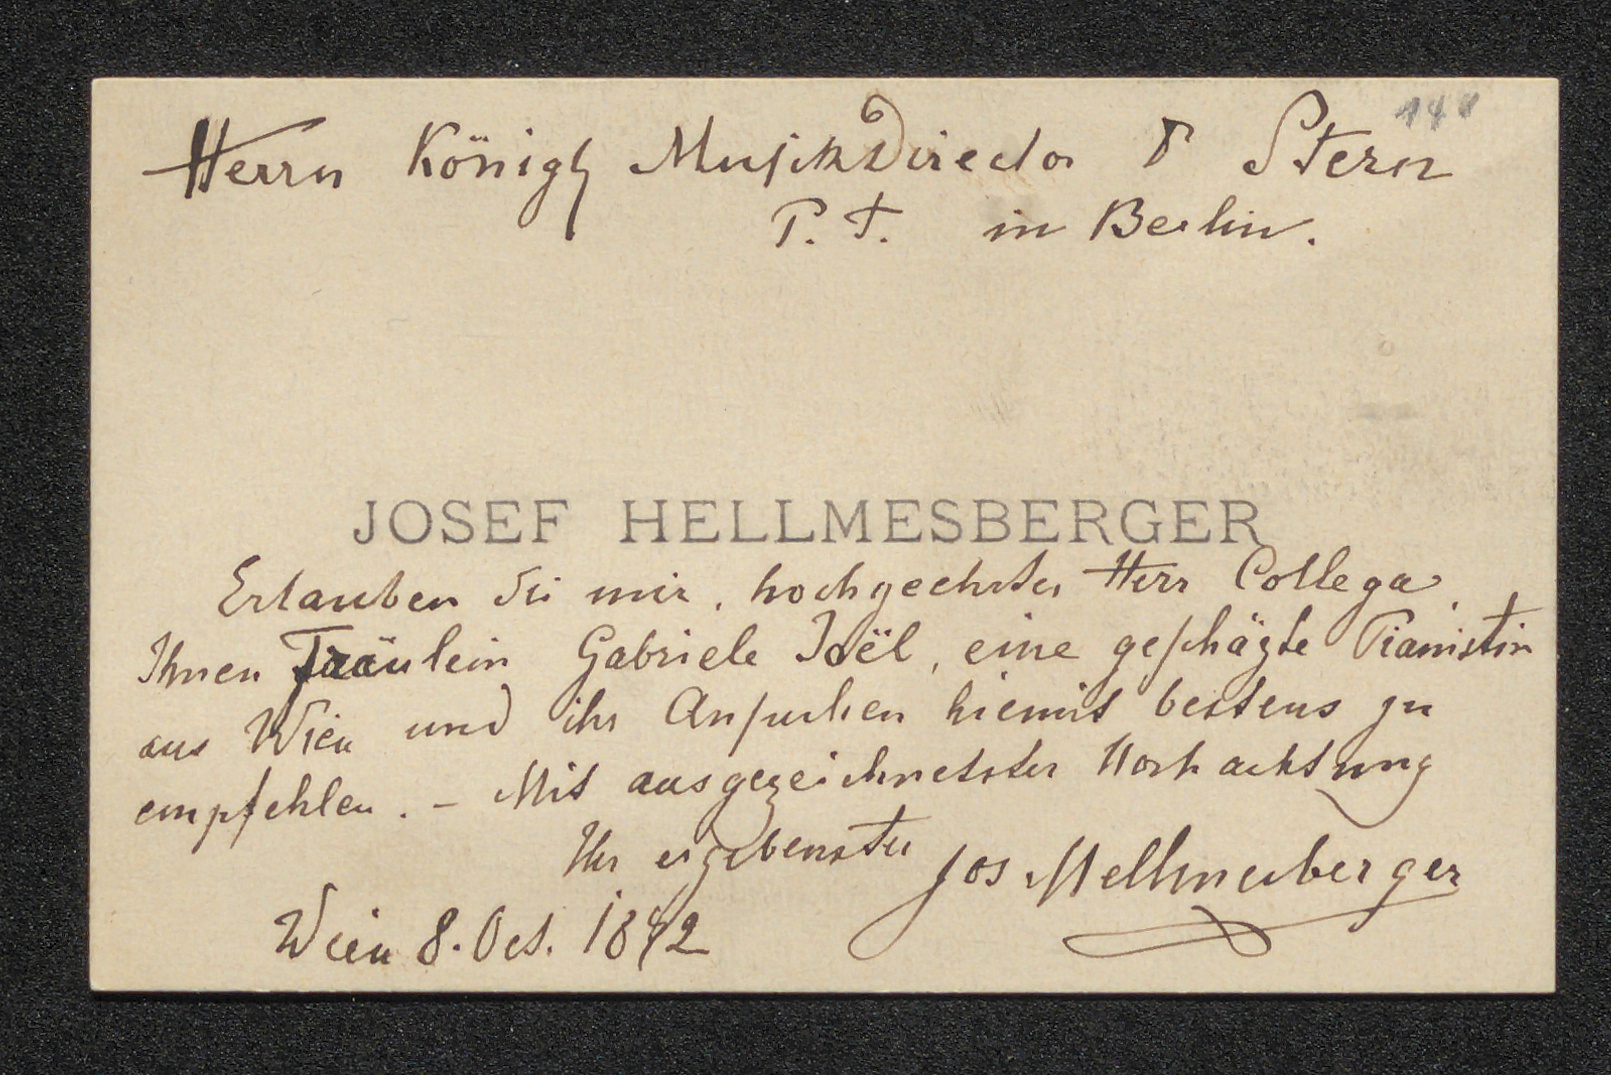 148
Herrn Königl Musikdirector Stern
P. T. in Berlin.
JOSEF HELLMESBERGER
Erlauben Sie mir, hochgeehrter Herr Collega,
Ihnen Fräulein Gabriele Joël, eine geschäzte Pianistin
aus Wien und ihr Ansuchen hiemit bestens zu
empfehlen. – Mit ausgezeichnetster Hochachtung
Ihr ergebenster Jos Hellmesberger
Wien 8. Oct. 1872